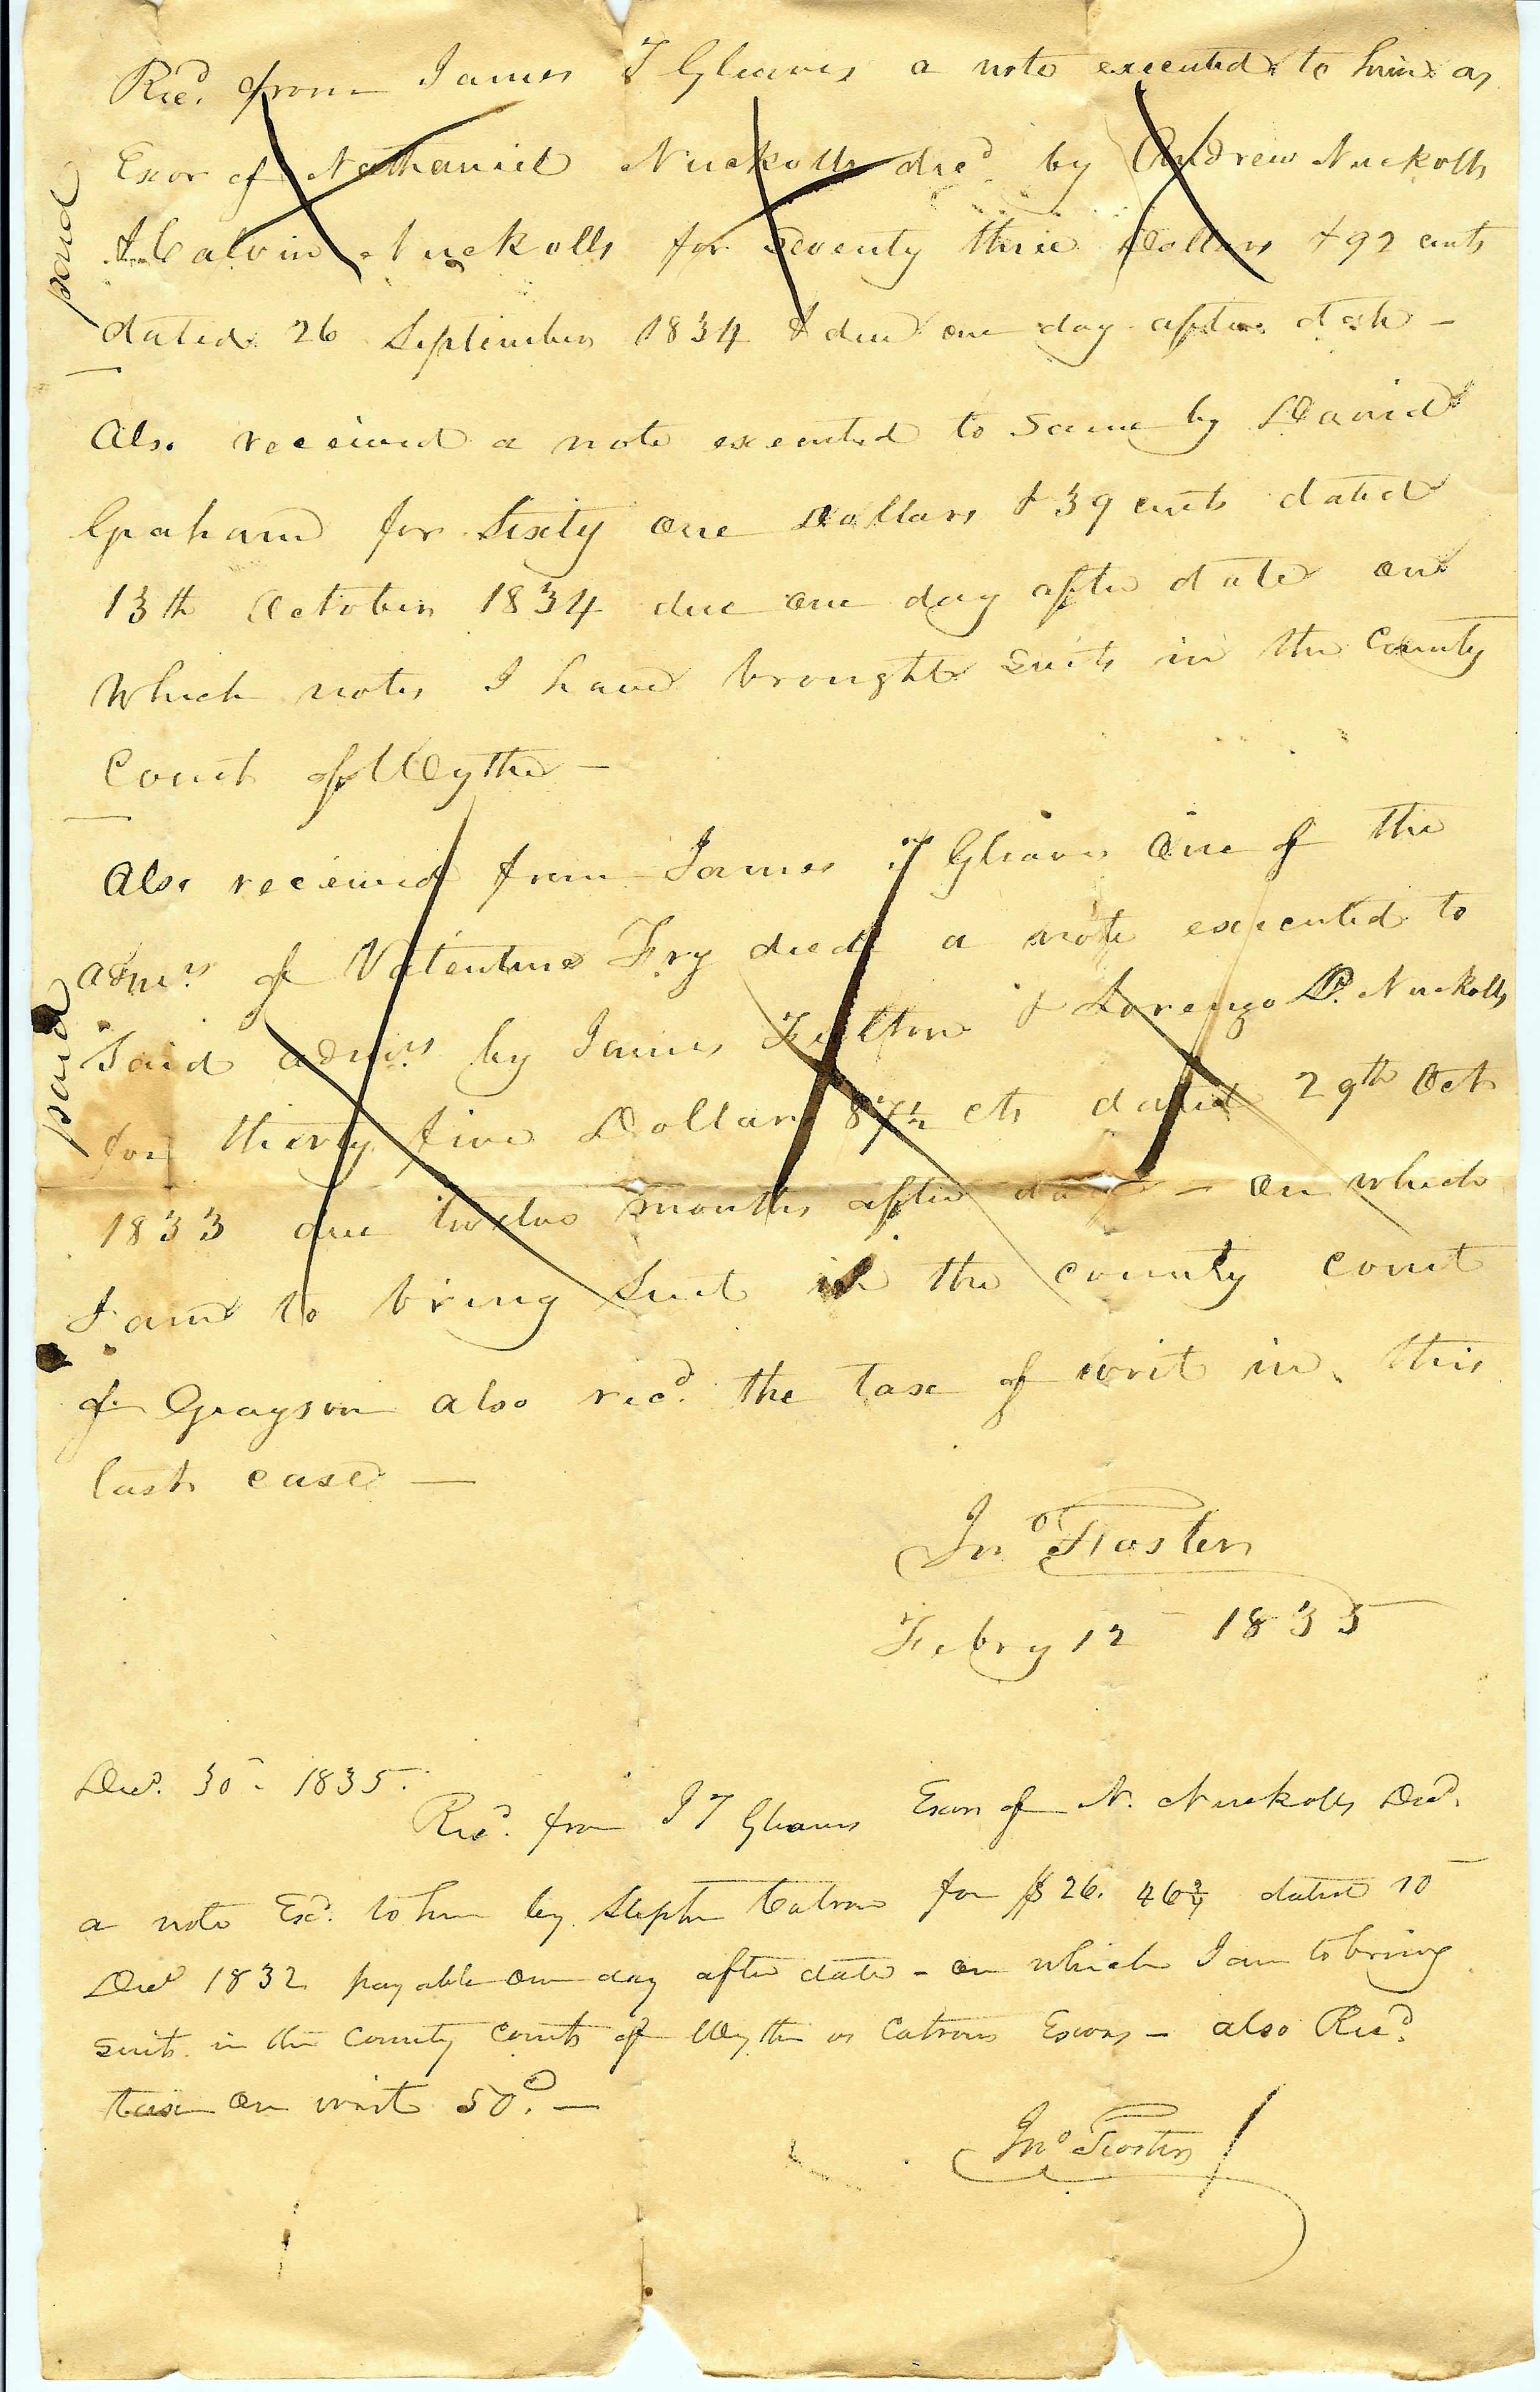 Recd. from James T Gleaves a note executed to him as
Exor of Nathaniel Nuckolls decd by Andrew Nuckolls
& Calvin Nuckolls for Seventy three Dollars & 92 cents
dated 26 September 1834 & due one day after date –
paid
Also received a note executed to same by David
Graham for Sixty one Dollars & 39 cents dated
13th October 1834 due one day after date on
Which notes I have brought suits in the County
Court of Wythe –
Also received from James T Gleaves One of the
admrs of Valentine Fry decd a note executed to
Said admrs by James Fulton & Lorenzo D. Nuckolls
for thirty five Dollars 87½ cts dated 29th Oct
1833 due twelve months after date – on which
I am to bring Suit in the county court
of Grayson also recd. the tax of writ in this
last case —
paid
Jno Foster
Febry 12 1835
Decr. 30 - 1835.
Recd. from J T Gleaves Exor of N. Nuckolls Decd.
a note Exd. to him by Stephen Catron for $26. 46¾ dated 10
Decr 1832 payable one day after date – on which I am to bring
suit in the County Court of Wythe vs Catrons Exors – also Recd.
tax on writ 50c. —
Jno Foster